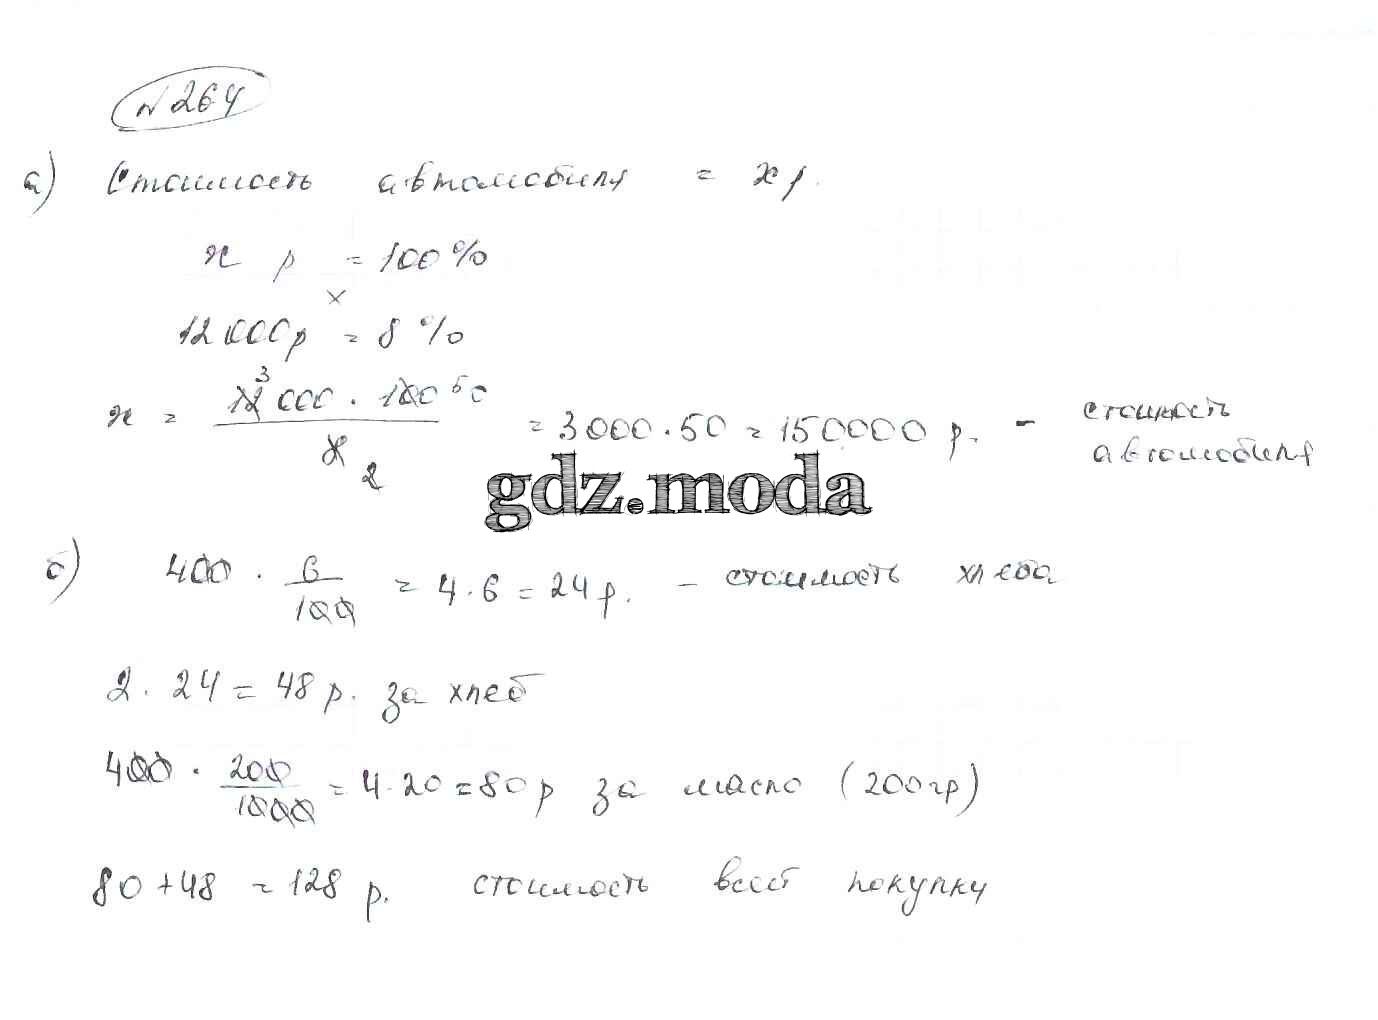 № 264
а) Стоимость автомобиля = x р.
x р = 100%
x
12000р = 8%
x = 12 3 000 · 100 50 / 8 2 = 3000 · 50 = 150000 р. - стоимость автомобиля
gdz.moda
б) 400 · 6/100 = 4 · 6 = 24 р. - стоимость хлеба
2 · 24 = 48 р. за хлеб
400 · 200/1000 = 4 · 20 = 80 р за масло (200гр)
80 + 48 = 128 р. стоимость всей покупку